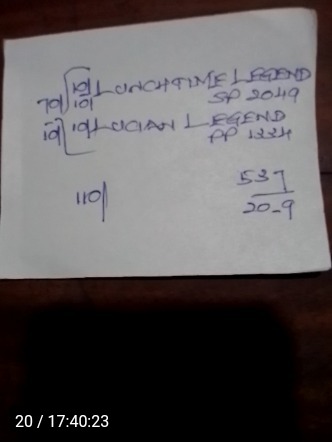 10/ LUNCHTIME LEGEND
70/ 10/ SP 2049
10/ 10/ LUCIAN LEGEND
PP 1224
110/ 537
20-9
20 / 17:40:23